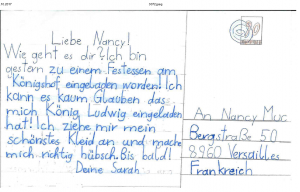 Liebe Nancy!
Wie geht es dir? Ich bin
gestern zu einem Festessen am
Königshof eingeladen worden! Ich
kann es kaum Glauben das
mich König Ludwig eingeladen
hat! Ich ziehe mir mein
schönstes Kleid an und mache
mich richtig hübsch. Bis bald!
Deine Sarah
An Nancy Muc
Bergstraße 50
8960 Versailles
Frankreich